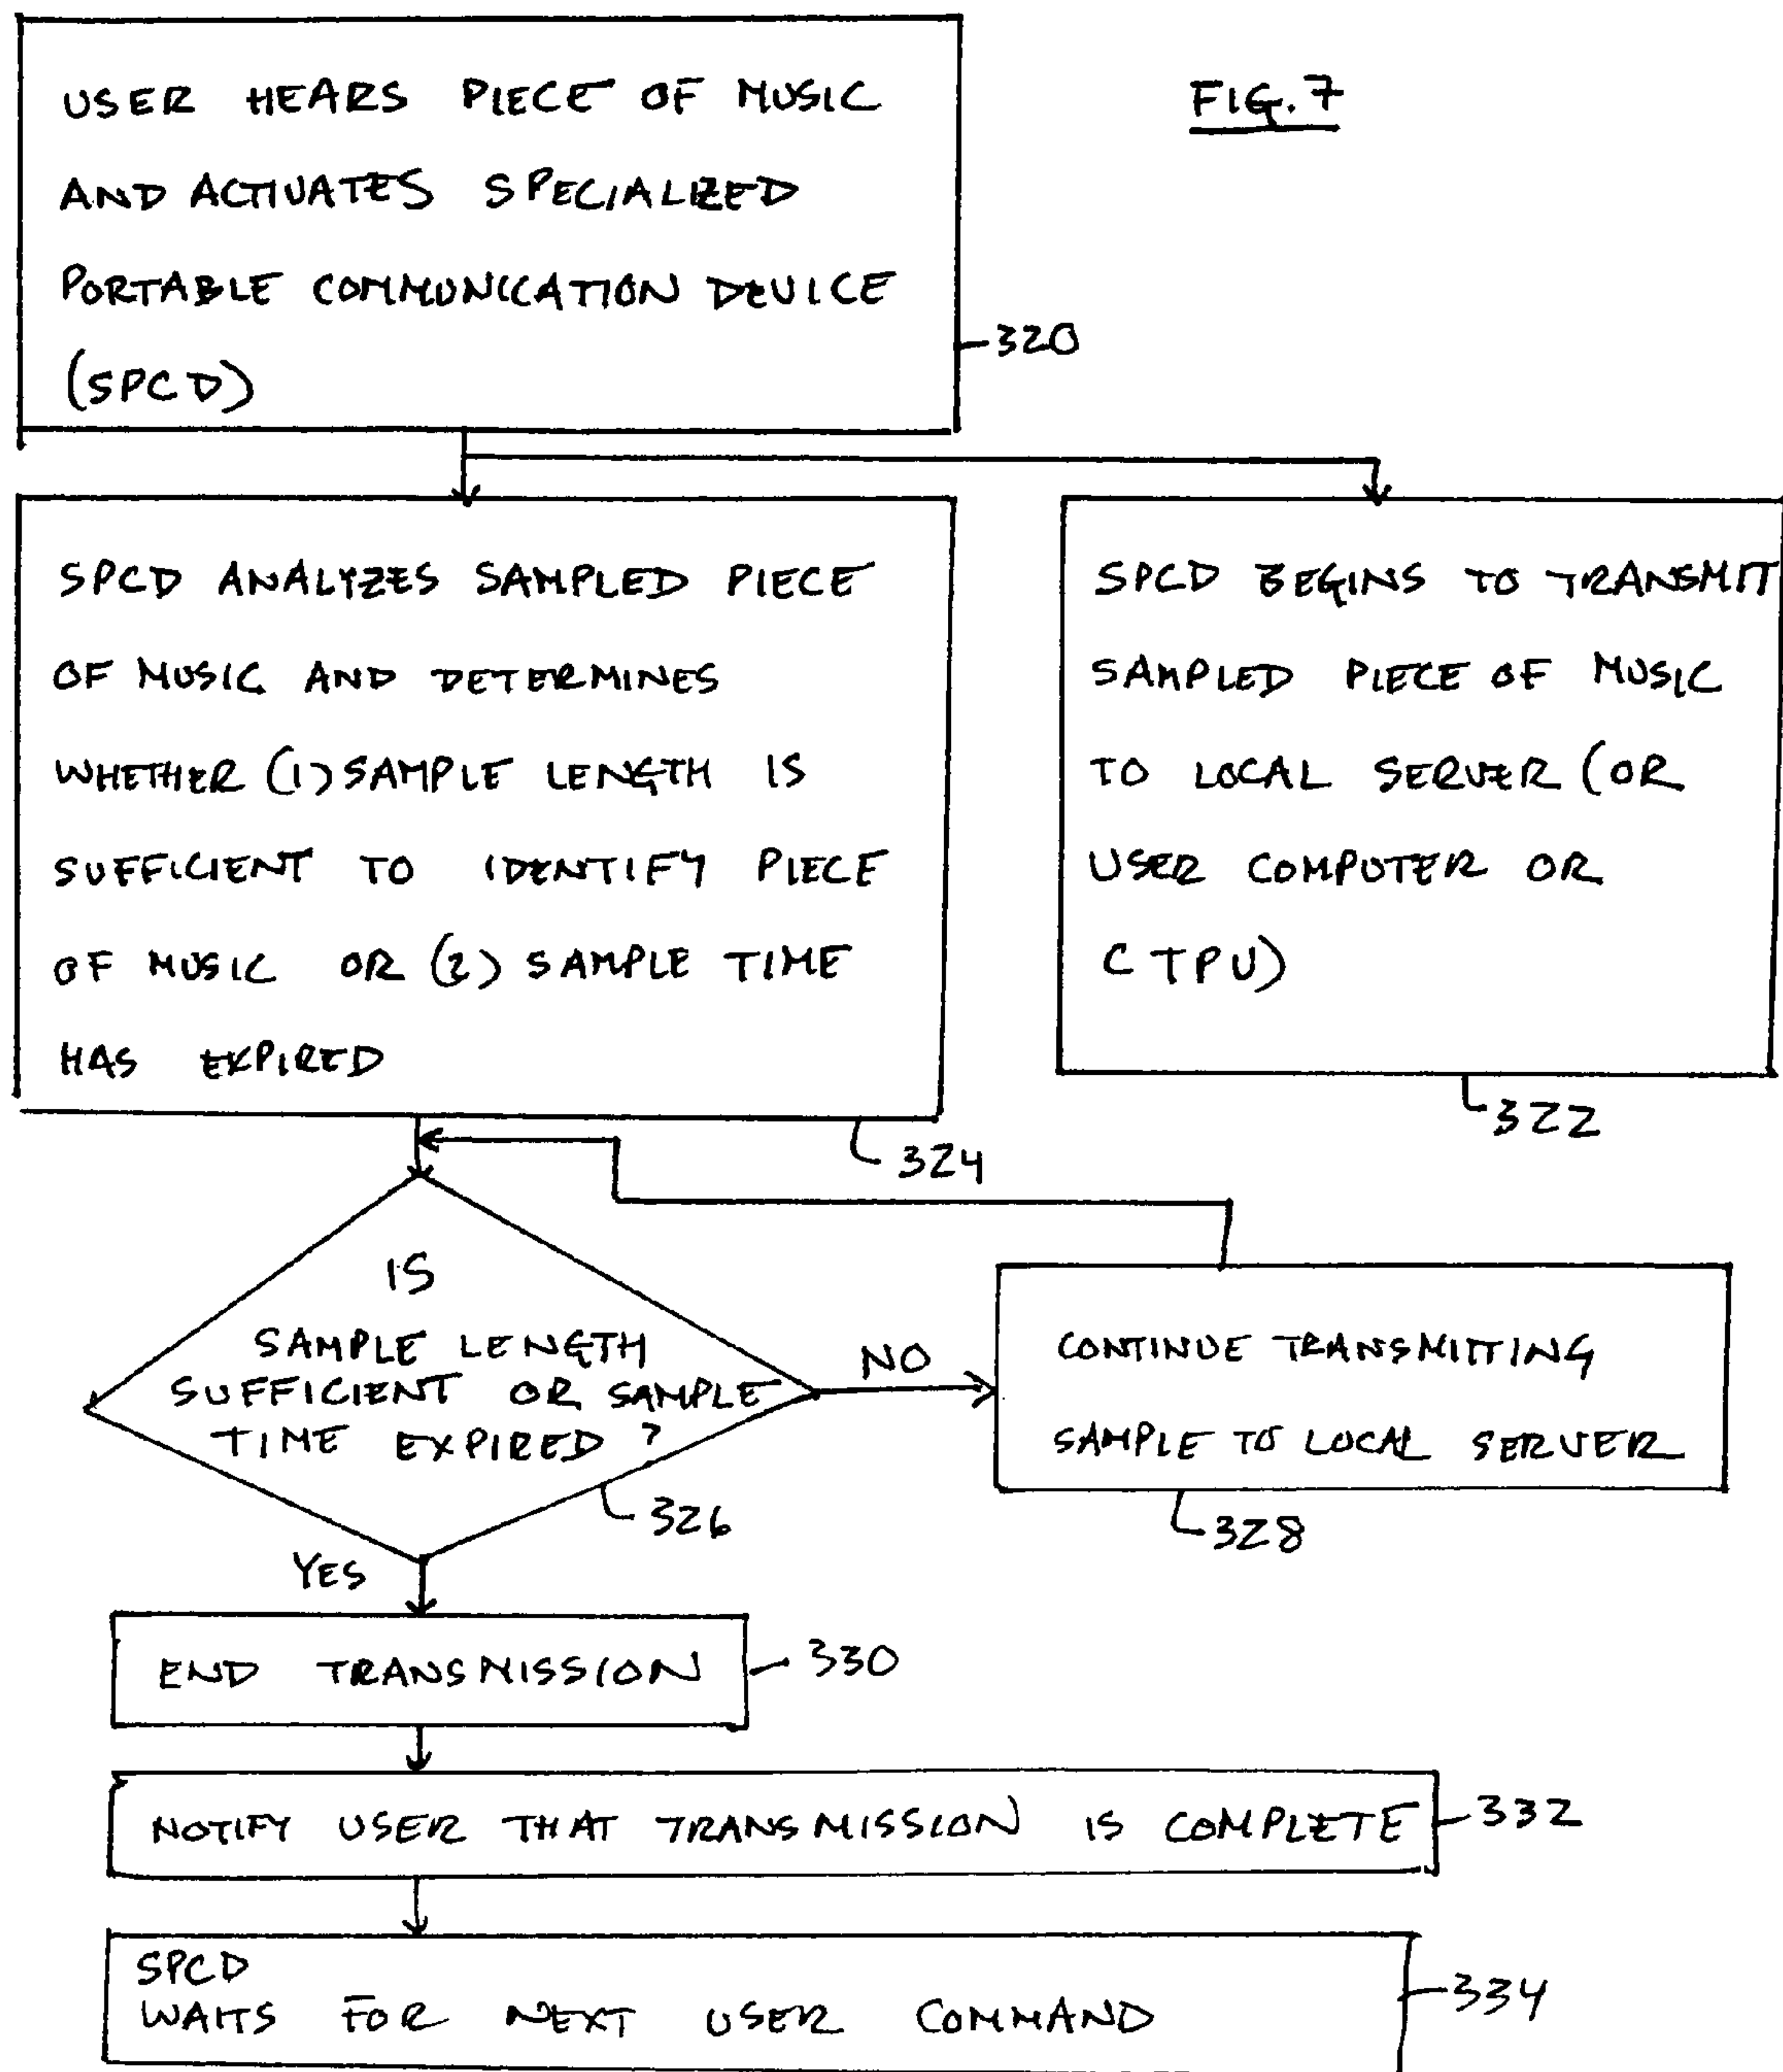 FIG. 7
USER HEARS PIECE OF MUSIC
AND ACTIVATES SPECIALIZED
PORTABLE COMMUNICATION DEVICE
(SPCD)
320
SPCD ANALYZES SAMPLED PIECE
OF MUSIC AND DETERMINES
WHETHER (1) SAMPLE LENGTH IS
SUFFICIENT TO IDENTIFY PIECE
OF MUSIC OR (2) SAMPLE TIME
HAS EXPIRED
324
SPCD BEGINS TO TRANSMIT
SAMPLED PIECE OF MUSIC
TO LOCAL SERVER (OR
USER COMPUTER OR
CTPU)
322
IS
SAMPLE LENGTH
SUFFICIENT OR SAMPLE
TIME EXPIRED ?
326
NO
CONTINUE TRANSMITTING
SAMPLE TO LOCAL SERVER
328
YES
END TRANSMISSION
330
NOTIFY USER THAT TRANSMISSION IS COMPLETE
332
SPCD
WAITS FOR NEXT USER COMMAND
334